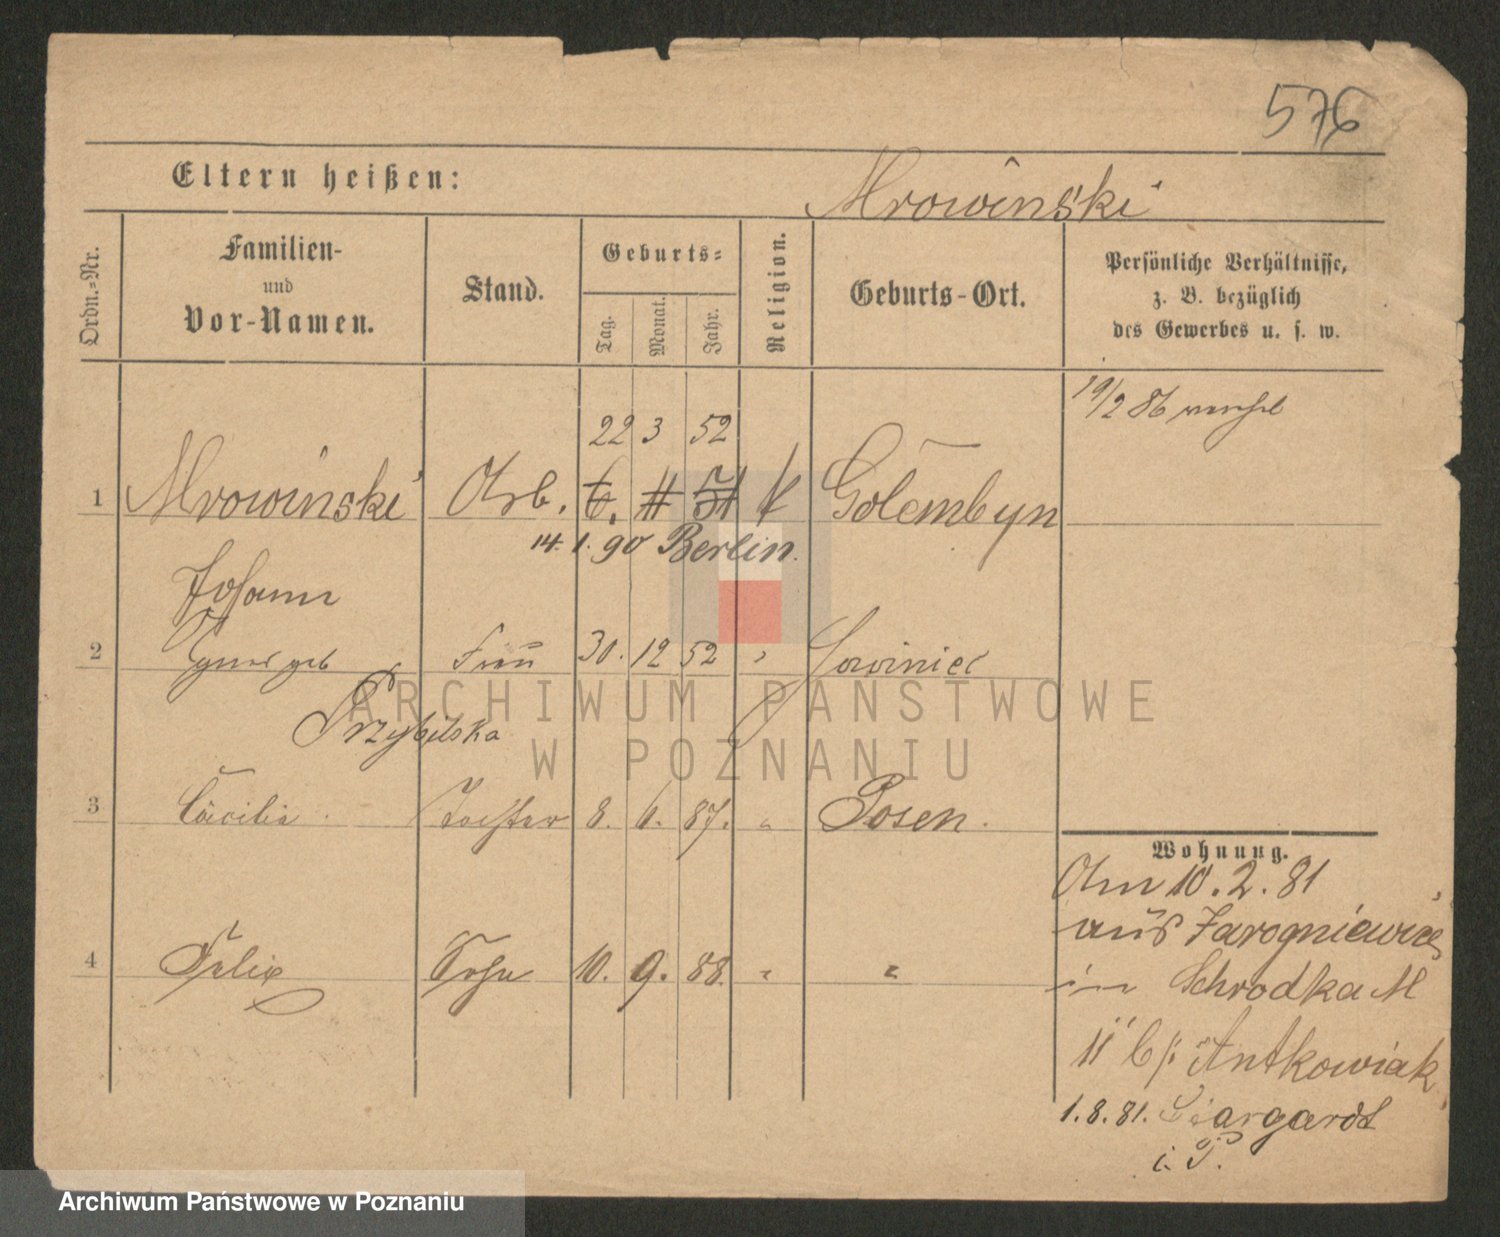 576
Eltern heißen:
Mrowinski
Ordn.=Nr.
Familien-
und
Vor-Namen.
Stand.
Geburts=
Tag.
Monat.
Jahr.
Religion.
Geburts-Ort.
Persönliche Verhältnisse,
z. B. bezüglich
des Gewerbes u. s. w.
19/2 86
22 3 52
1 Mrowinski Arb. 6. 51 k Golembyn
14. 1. 90 Berlin.
Johann
2 geb Frau 30. 12 52 " Sowiniec
Przybilska
ARCHIWUM PAŃSTWOWE
W POZNANIU
3 Cäcilie Tochter 8. 6. 87. " Posen.
4 Felix Sohn 10. 9. 88. " "
Wohnung.
Am 10. 2. 81
aus Zarogniewice
in Schrodka M
11 b/: Antkowiak
1. 8. 81. Stargardt
i. P.
Archiwum Państwowe w Poznaniu